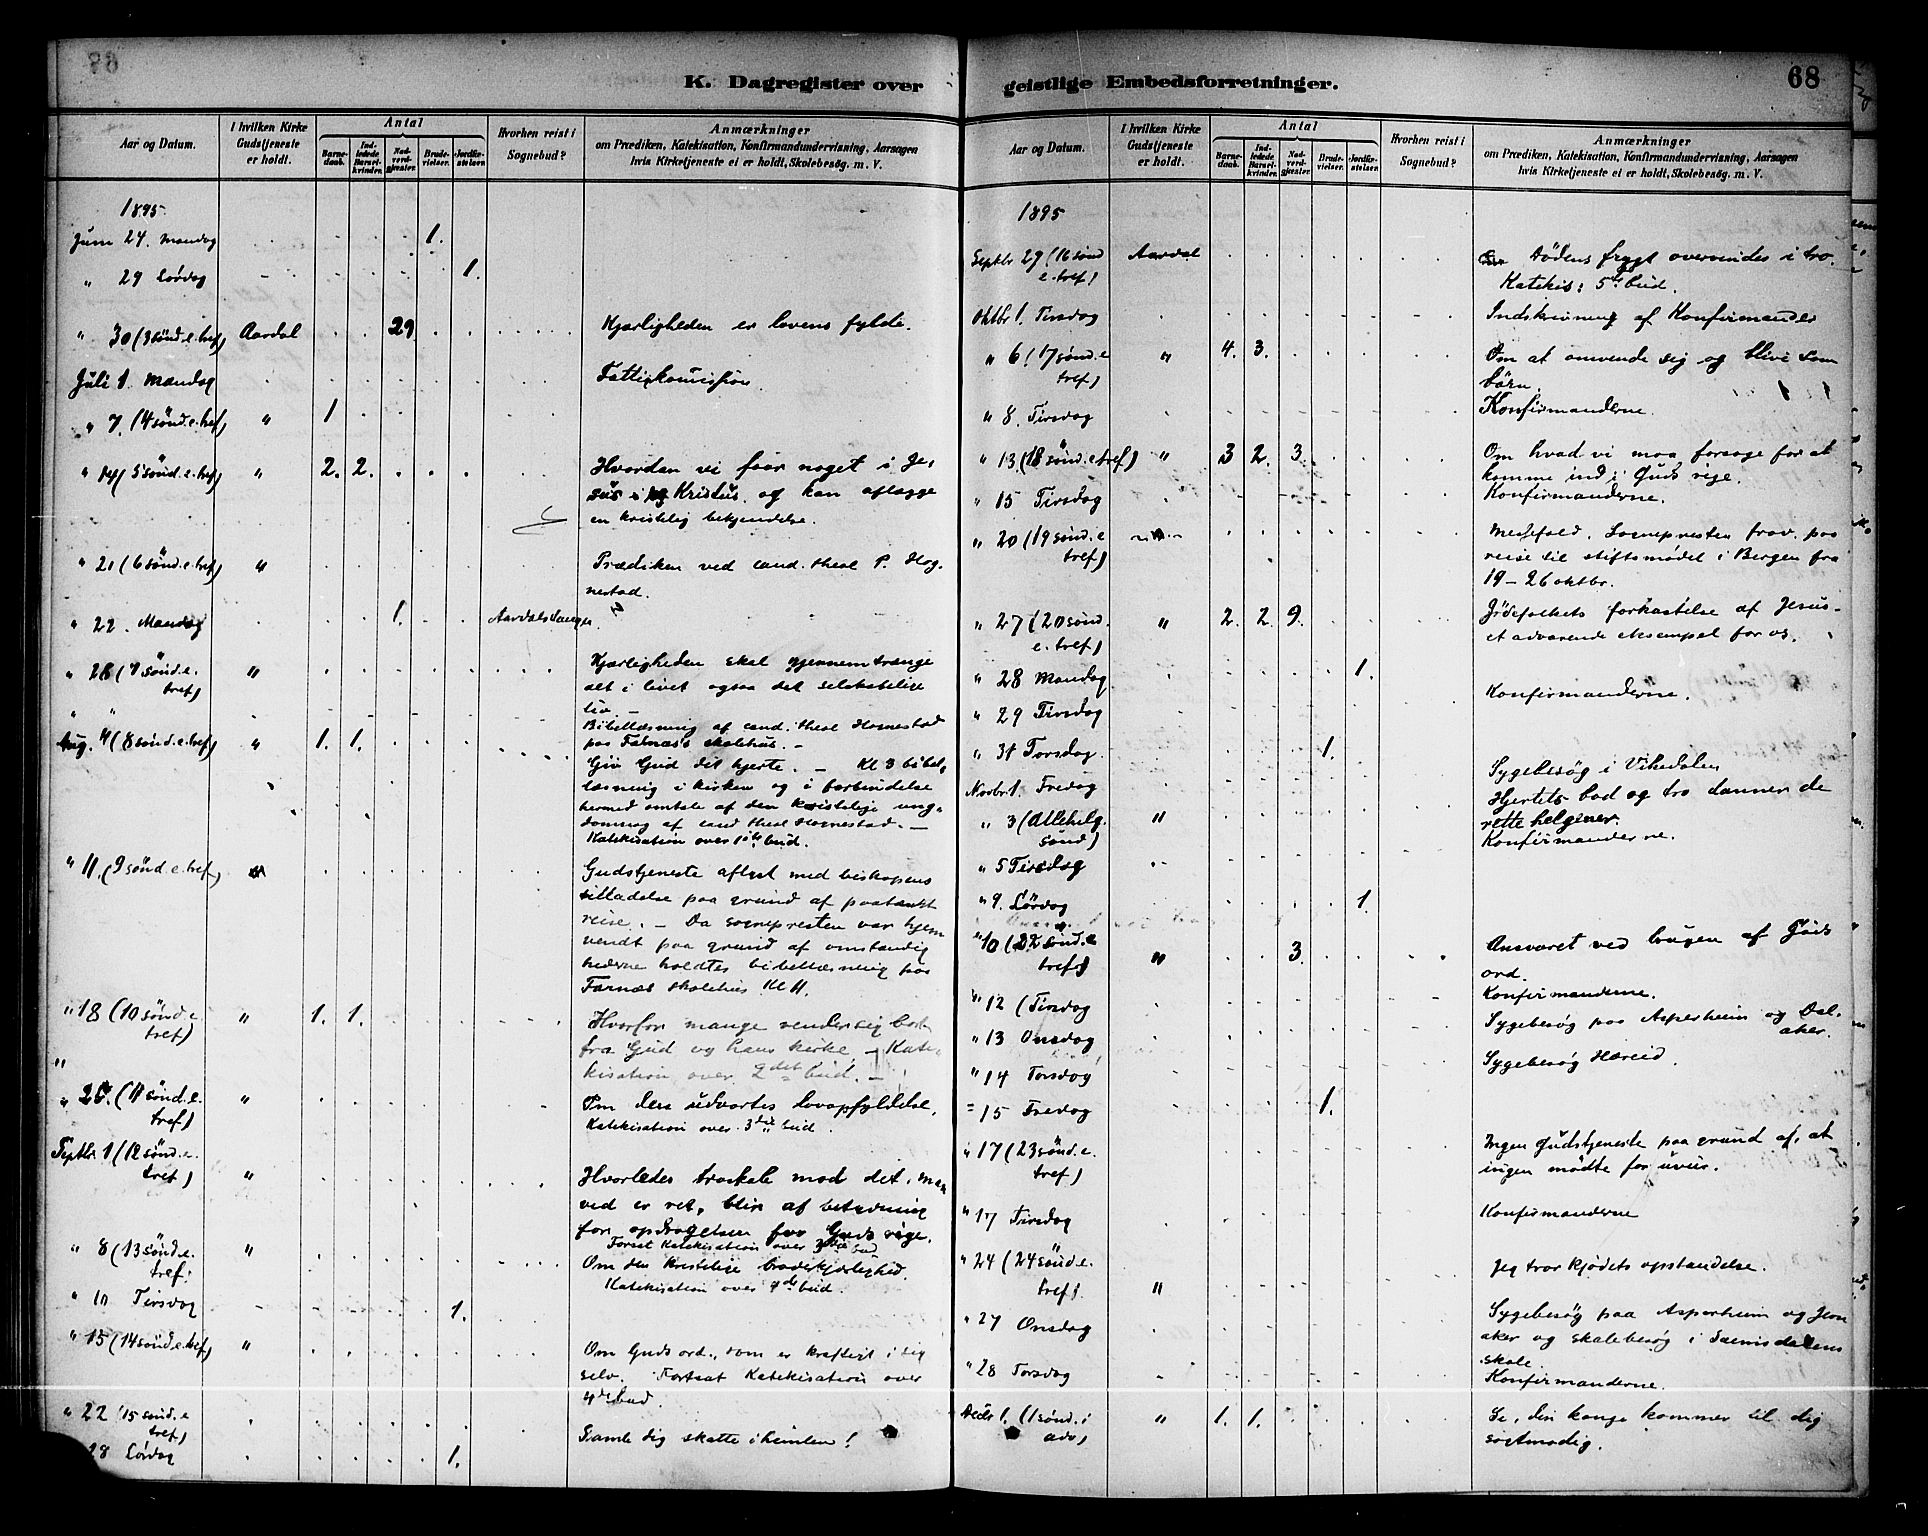 K. Dagregister over
Aar og Datum.
I hvilken Kirke Gudstjeneste er holdt.
Antal
Barnedaab.
Indledede Barselkvinder.
Nadverdgjester.
Brudevielser.
Jordfæstelser.
Hvorhen reist i Sognebud?
Anmærkninger
om Prædiken, Katekisation, Konfirmandundervisning, Aarsagen
hvis Kirketjeneste ei er holdt, Skolebesøg. m. V.
1895
Juni 24. Mandag 1.
" 29 Lørdag 1.
" 30 (3 sønd. e. tref) Aardal 29 Kjærligheden er lovens fylde.
Juli 1. Mandag Fattigkomission
" 7. (4 sønd. e. tref) " 1
" 14 (5 sønd. e. tref) " 2. 2. Hvordan vi faar noget i Je-
sus Kristus og kan aflægge
en kristelig bekjendelse.
" 21 (6 sønd. e. tref) " Prædiken ved cand. theol P. Hog-
nestad.
" 22. Mandag 1. Aardalstangen
" 28 (7 sønd. e. " Kjærligheden skal gjennemtrænge
tref) alt i livet ogsaa det selskabelige
liv. —
" " Bibellæsning af cand. theol Hognestad
paa Farnæs skolehus. —
Aug. 4 (8 sønd. e. tref) " 1. 1. Giv Gud dit hjerte. — Kl 3 bibel-
læsning i kirken og i forbindelse
hermed omtale af den kristelige ung-
domssag af cand theol Hognestad. —
Katekisation over 1ste bud.
" 11. (9 sønd. e. tref) Gudstjeneste aflyst med biskopens
tilladelse paa grund af paatænkt
reise. — Da sognepresten var hjem
vendt paa grund af omstændig
hederne holdtes bibellæsning paa
Farnæs skolehus Kl 11.
" 18 (10 sønd. e. " 1. 1. Hvorfor mange vender sig bort
tref) fra Gud og hans kirke. — Kate-
" kisation over 2det bud. —
" 25. (11 sønd. e. " Om den udvortes lovopfyldelse.
tref) Katekisation over 3die bud.
Septbr 1 (12 sønd. e.
tref) " Hvorledes troskab mod det, man
ved er ret, blir af betydning
for opdragelsen for Guds rige.
Fortsat Katekisation over 3die bud
" 8 (13 sønd. e. " Om den kristelige broderkjærlighed.
tref. Katekisation over 4de bud.
" 10 Tirsdag 1.
" 15 (14 sønd. e. tref) " Om Guds ord, som er kraftigt i sig
selv. Fortsat Katekisation over
4de bud.
" 22 (15 sønd. e
tref) Samle dig skatte i himlen!
28 Lørdag 1.
geistlige Embedsforretninger.
68
Aar og Datum.
I hvilken Kirke Gudstjeneste er holdt.
Antal
Barnedaab.
Indledede Barselkvinder.
Nadverdgjester.
Brudevielser.
Jordfæstelser.
Hvorhen reist i Sognebud?
Anmærkninger
om Prædiken, Katekisation, Konfirmandundervisning, Aarsagen
hvis Kirketjeneste ei er holdt, Skolebesøg. m. V.
1895
Septbr 29 (16 sønd Aardal Dødens frygt overvindes i tro.
e. tref) Katekis: 5te bud.
Oktbr 1. Tirsdag Indskrivning af Konfirmander
" 6 (17 sønd. e " 4. 3. Om at omvende sig og blive som
tref) børn.
" 8. Tirsdag Konfirmanderne.
" 13 (18 sønd. e tref) " 3 2. 3. Om hvad vi maa forsage for at
komme ind i Guds rige.
" 15 Tirsdag Konfirmanderne.
" 20 (19 sønd. e Messefald. Sognepresten frav. paa
tref) reise til stiftsmødet i Bergen fra
19 – 26 oktbr.
" 27 (20 sønd. " 2. 2. 9. Jødefolkets forkastelse af Jesus –
e. tref) et advarende eksempel for os.
" 28 Mandag 1.
Konfirmanderne.
" 29 Tirsdag
" 31 Torsdag 1.
Novbr 1. Fredag Sygebesøg i Vikedalen
" 3 (Allehelg. " Hjertets bod og tro danner de
sønd) rette helgener.
" 5 Tirsdag Konfirmanderne.
" 9. Lørdag 1.
" 10 (22 sønd. e " 3. Ansvaret ved brugen af Guds
tref) ord.
" 12 (Tirsdag Konfirmanderne.
" 13 Onsdag Sygebesøg paa Asperheim og
aker.
" 14 Torsdag Sygebesøg Hæreid
" 15 Fredag 1.
" 17 (23 sønd. e. Ingen Gudstjeneste paa grund af, at
tref) ingen mødte for uveir.
" 17 Tirsdag Konfirmanderne
" 24 (24 sønd. e. Jeg tror kjødets opstandelse.
tref). "
" 27 Onsdag Sygebesøg paa Asperheim og
aker og skolebesøg i
skole.
" 28 Torsdag Konfirmanderne.
Decbr 1. (1 sønd. i " 1. 1. Se, din konge kommer til dig
adv) sagtmodig.